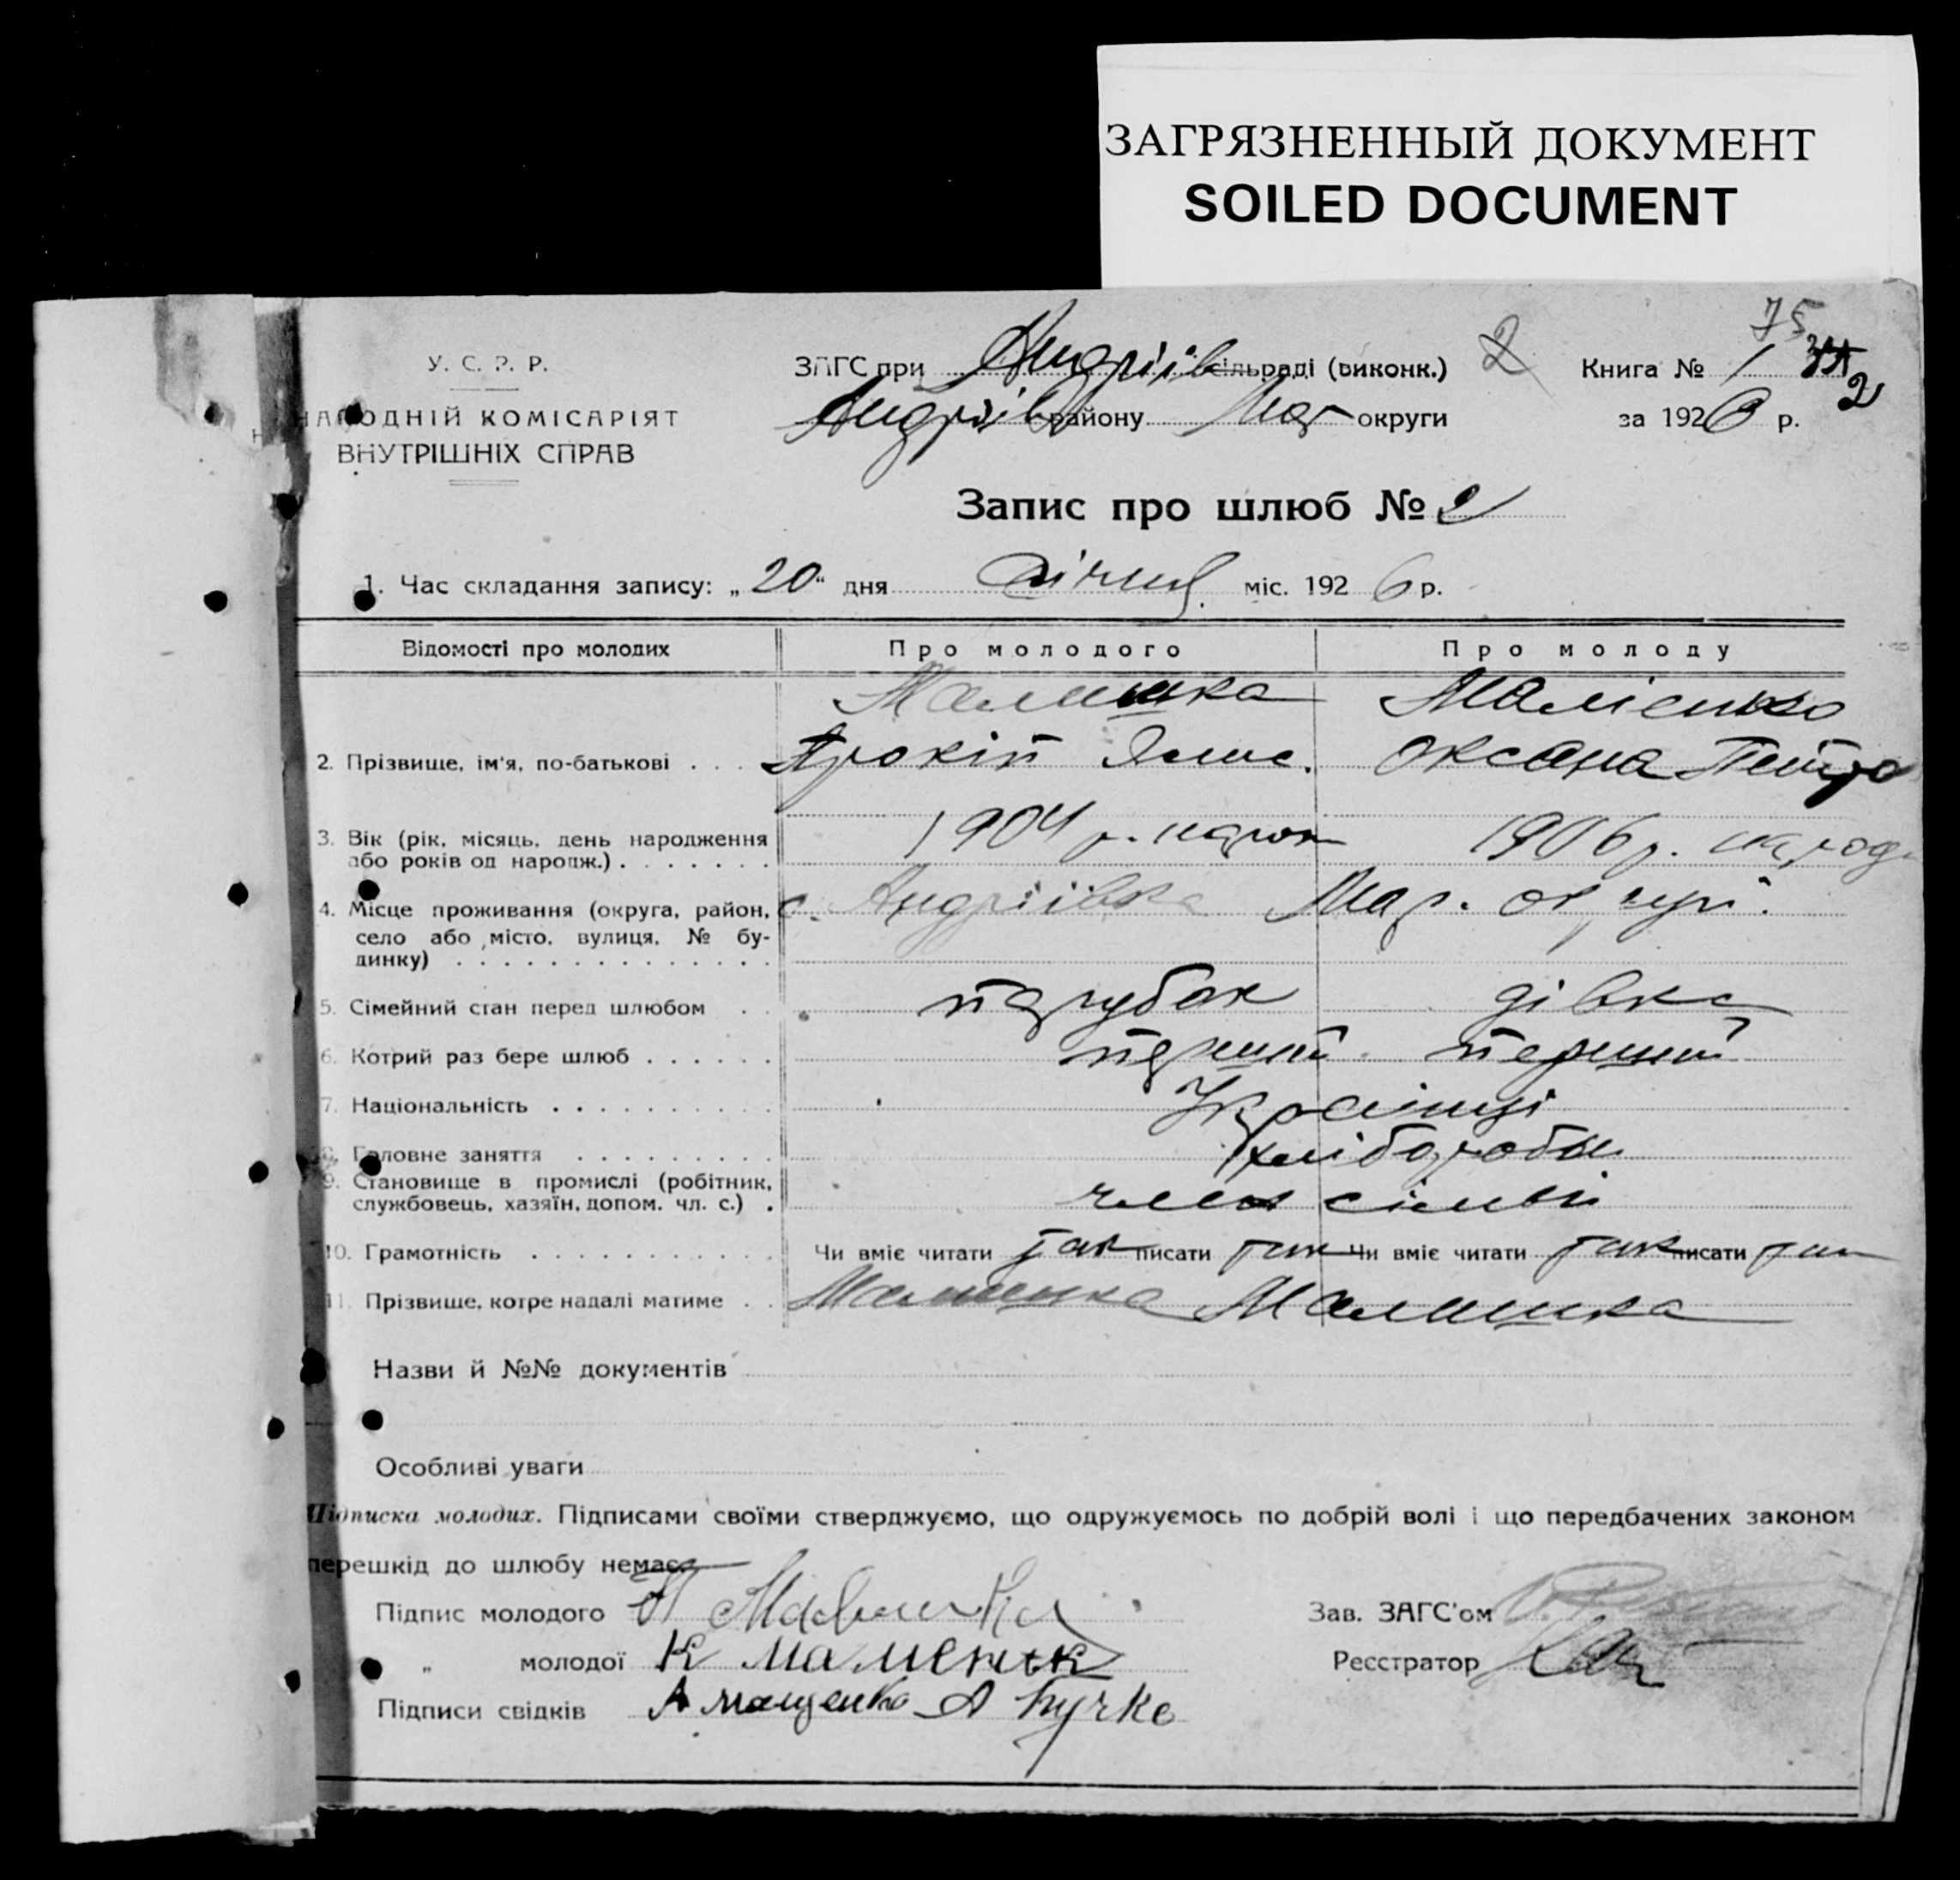 ЗАГРЯЗНЕННЫЙ ДОКУМЕНТ
SOILED DOCUMENT
75
У. С. Р. Р.
НАРОДНІЙ КОМІСАРІЯТ
ВНУТРІШНІХ СПРАВ
ЗАГС при Андріїв сільраді (виконк.) 2
Книга № 1
2
Андріїв району Мар округи
за 1926 р.
Запис про шлюб № 2
1. Час складання запису: „20" дня січня міс. 1926 р.
Відомості про молодих Про молодого Про молоду
Малишка Малієнко
2. Прізвище, ім'я, по-батькові . . . Прокіп Оксана Петро
3. Вік (рік, місяць, день народження 1904 р. народ 1906 р. народ
або років од народж.) . . . . . . .
4. Місце проживання (округа, район, с. Андріївка Мар. округи.
село або місто, вулиця, № бу-
динку) . . . . . . . . . . . . . .
5. Сімейний стан перед шлюбом . . парубок дівка
6. Котрий раз бере шлюб . . . . . . перший перший
7. Національність . . . . . . . . . . Українці
8. Головне заняття . . . . . . . . . хлібороби
9. Становище в промислі (робітник,
службовець, хазяїн, допом. чл. с.) . член сімьї
10. Грамотність . . . . . . . . . . . Чи вміє читати так писати так Чи вміє читати так писати так
11. Прізвище, котре надалі матиме . . Малишка Малишка
Назви й №№ документів
Особливі уваги
Підписка молодих. Підписами своїми стверджуємо, що одружуємось по добрій волі і що передбачених законом
перешкід до шлюбу немає.
Підпис молодого П Малишка
Зав. ЗАГС'ом
„ молодої К маленьк
Реєстратор
Підписи свідків А мащенко А Бучко